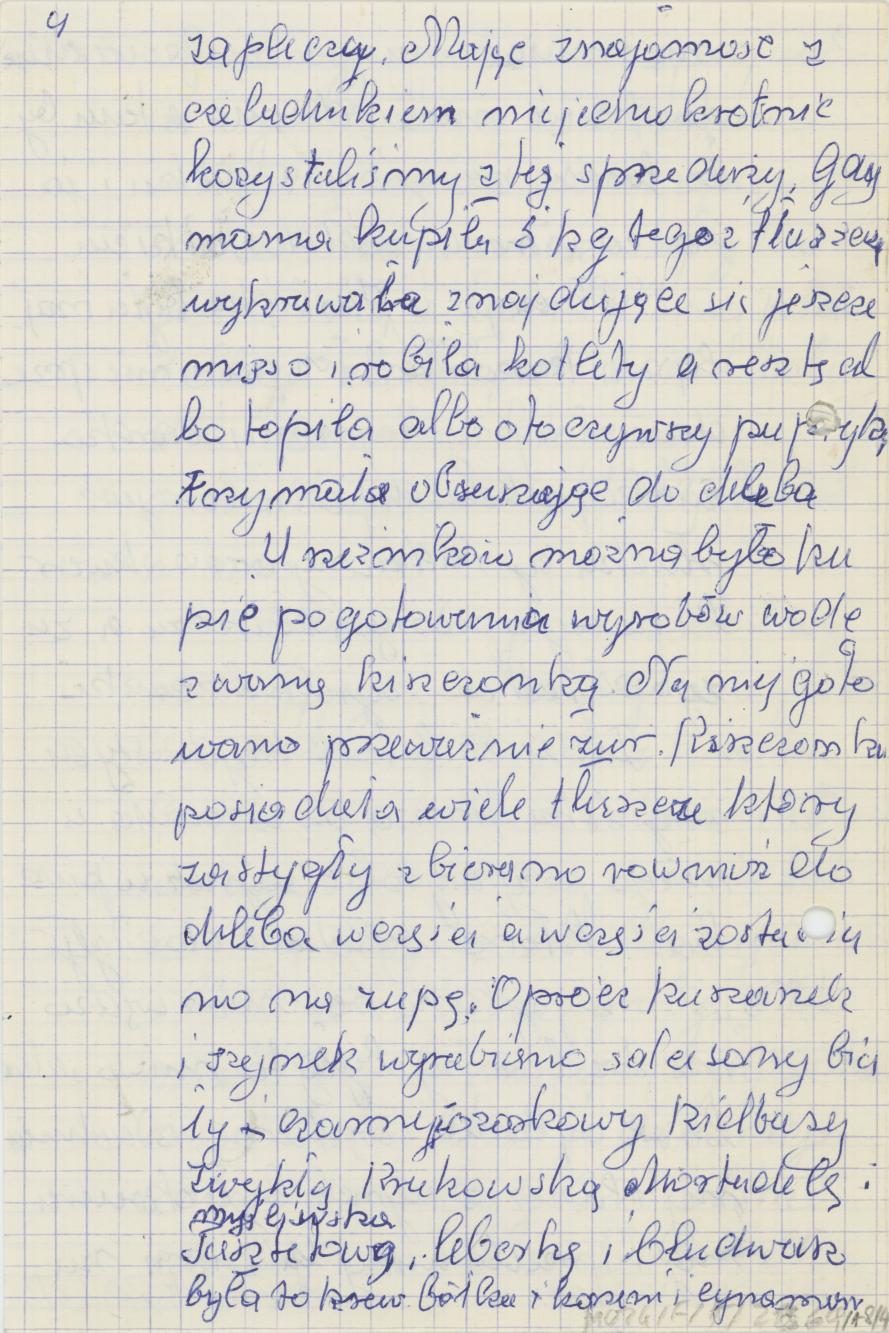 4
zapleczy. Mając znajomość z
czeladnikiem niejednokrotnie
kozystaliśmy z tej sprzedarzy. Gdy
mama kupiła 5 kg tegoż tłuszczu
wykrawała znajdujące się jeszcze
mięso i robiła kotlety a resztę al
bo topiła albo otoczywszy papryką
trzymała obsuszając do chleba
U rzeźników można było ku
pić po gotowaniu wyrobów wodę
zwaną kiszczonką. Na niej goto
wano przeważnie żur. Kiszczonka
posiadała wiele tłuszczu który
zastygły zbierano rownież do
chleba wczęści a wczęści zostawia
no na zupę. Oprócz kaszanek
i szynek wyrabiano salcesony bia
ły i czarny, ozorkowy Kiełbasy
zwykłą, Krakowską Mortadelę i
myśliwska
Pasztetową, leberkę i bludwusz
była to krew bółka i korzeni i cynamon